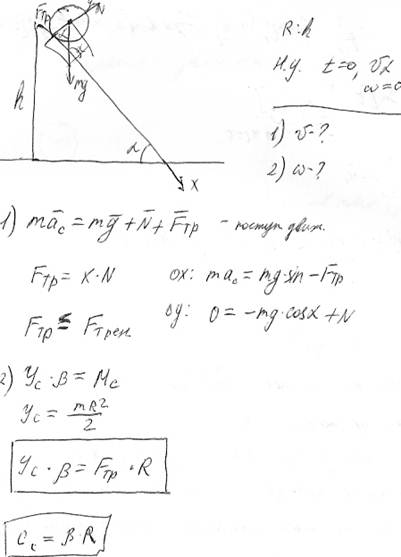 Fтр N
R; h
h
mg
Н.у. t=0, v
ω=0
α
x
1) v-?
2) ω-?
1) māc = mḡ + N̄ + F̄тр - поступ движ.
Fтр = K·N
ox: mac = mg·sin - Fтр
Fтр ≤ Fтрен
oy: 0 = -mg·cosα + N
2) Yc · β = Mc
Yc = mR²/2
Yc · β = Fтр · R
ac = β·R